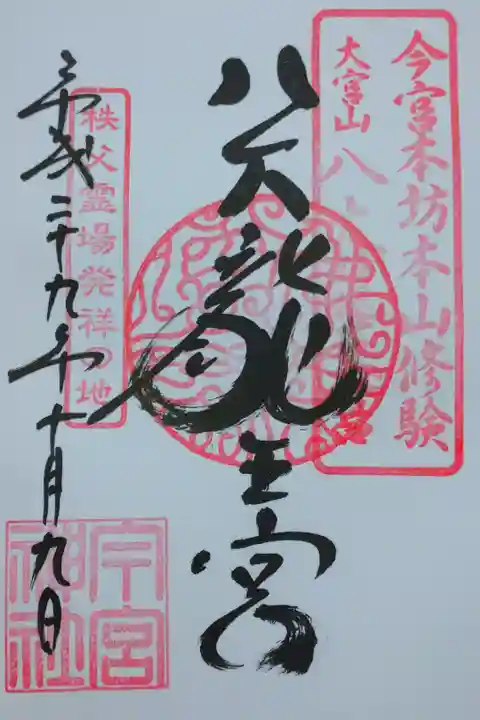 今宮本坊本山修験
大宮山八
八大龍王宮
秩父霊場発祥の地
平成二十九年十月九日
今宮
神社